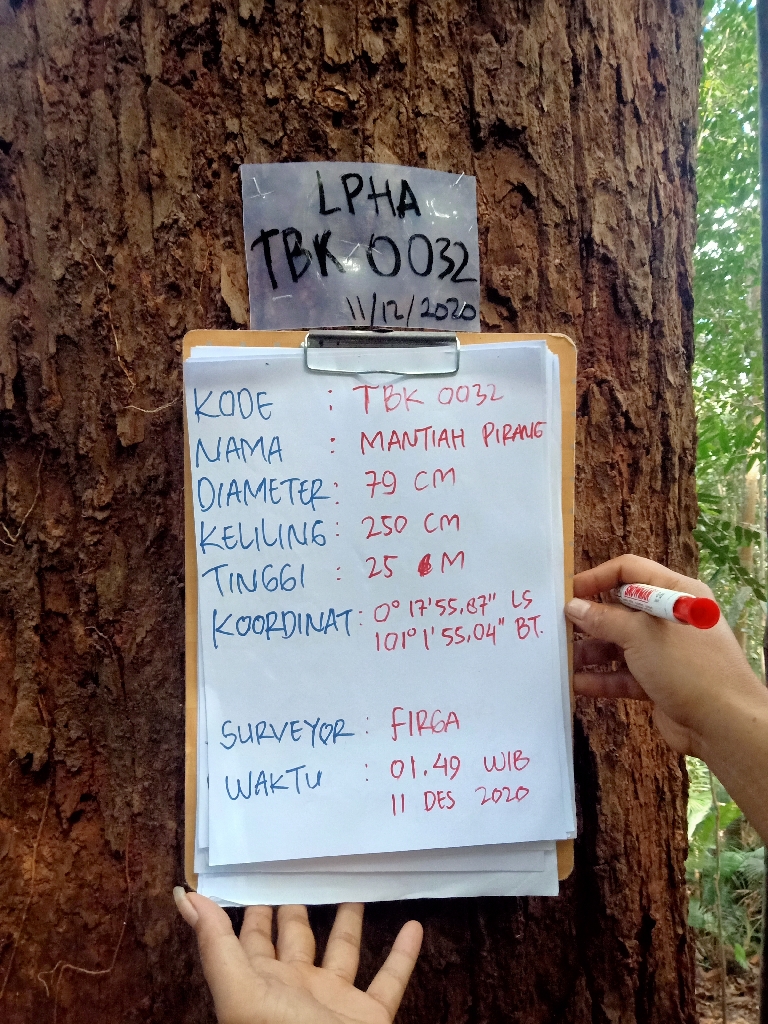 LPHA
TBK 0032
11/12/2020
KODE : TBK 0032
NAMA : MANTIAH PIRANG
DIAMETER : 79 CM
KELILING : 250 CM
TINGGI : 25 M
KOORDINAT : 0° 17'55,87" LS
101° 1'55,04" BT.
SURVEYOR : FIRGA
WAKTU : 01.49 WIB
11 DES 2020
SNOWMAN